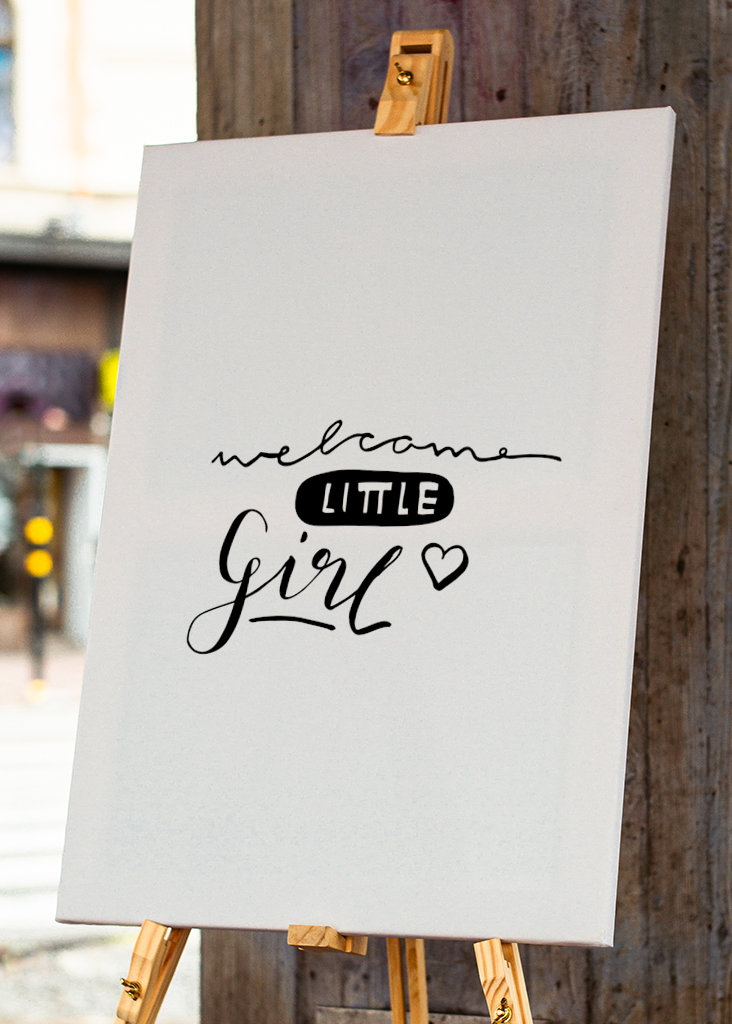 welcome
LITTLE
Girl